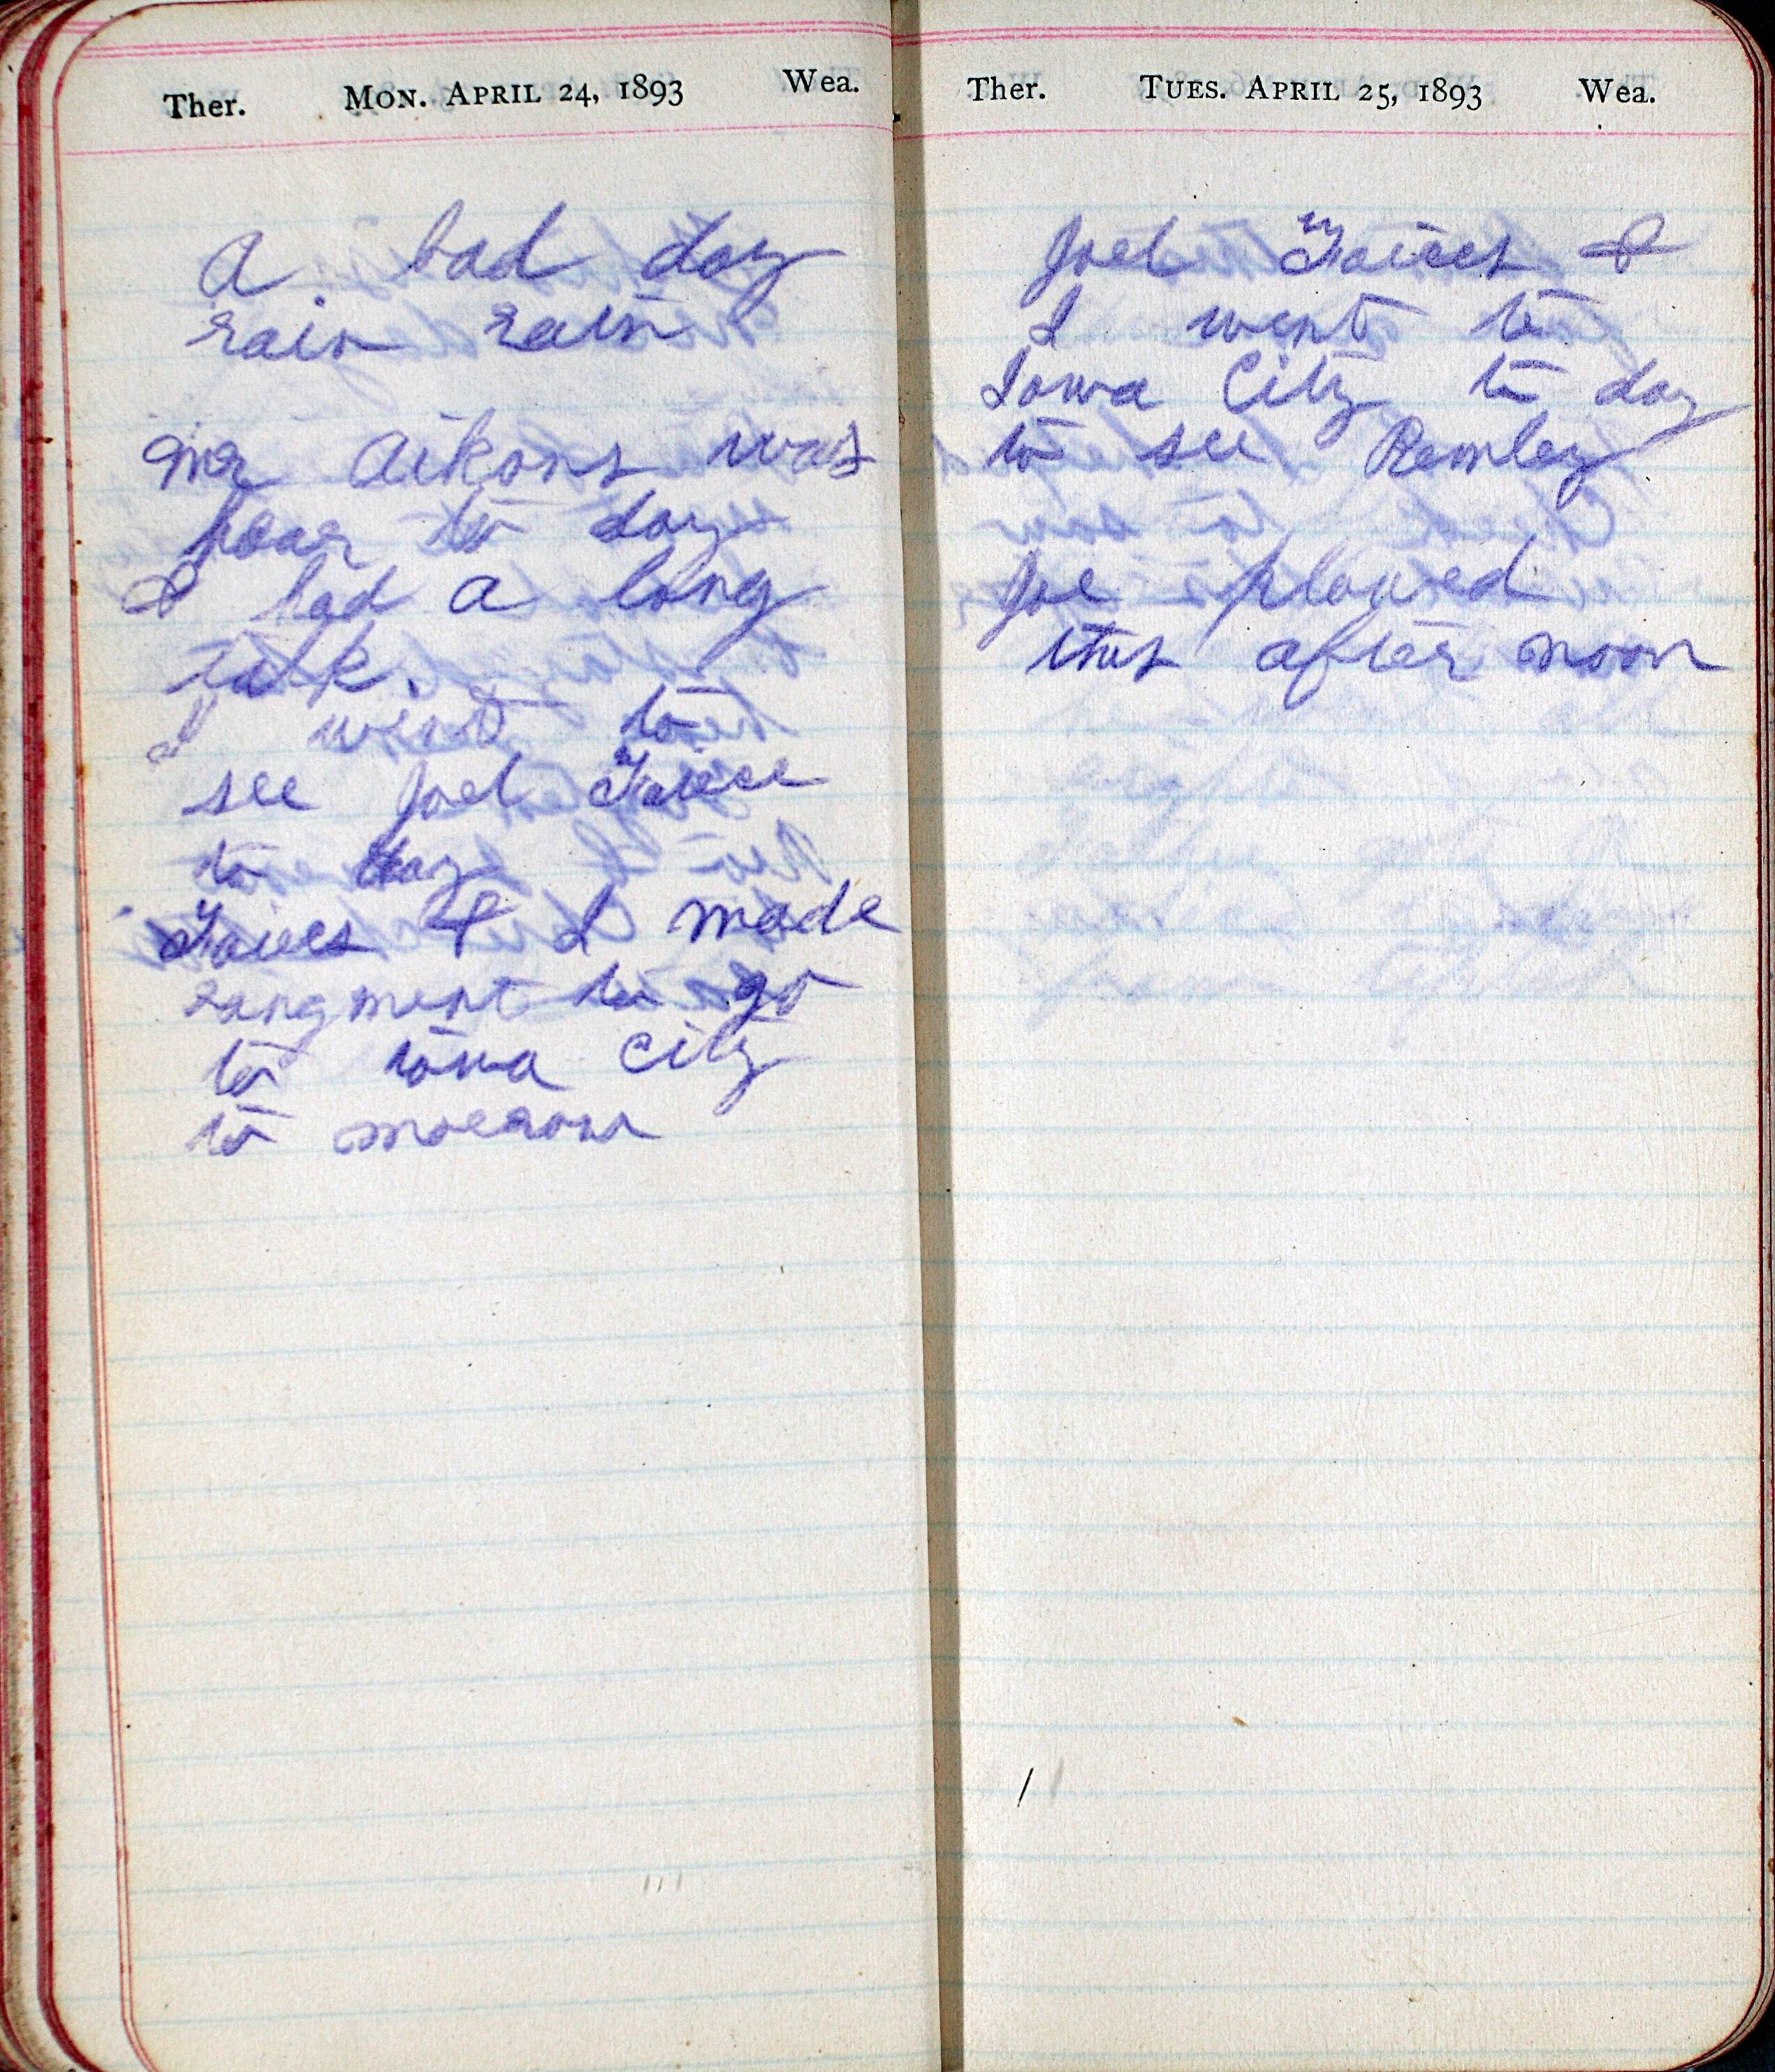 Ther. MON. APRIL 24, 1893 Wea.
A bad day
rain rain
Mr Aikons was
hear to day
I had a long
talk.
I went to
see Joel
to day
& I made
rangment to go
to iowa City
to morrow
Ther. TUES. APRIL 25, 1893 Wea.
Joel &
I went to
Iowa City to day
to see Remley
Joe plowed
this after noon